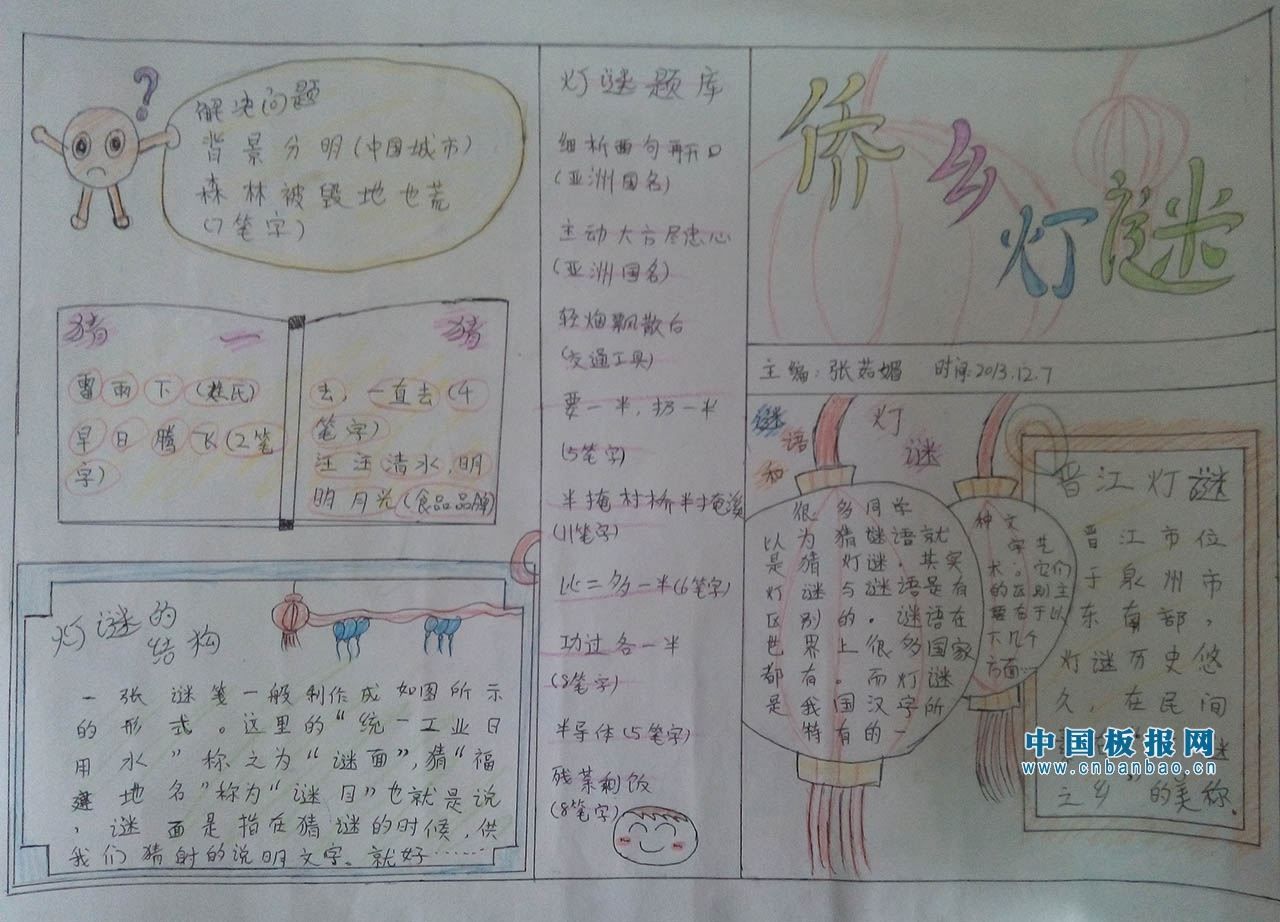 侨乡灯谜
主编:张茹媚 时间:2013.12.7
解决问题
背景分明(中国城市)
森林被毁地也荒
(7笔字)
猜一猜
雷雨下(姓氏)
早日腾飞(2笔
字)
去,一直去(4
笔字)
汪汪清水,明
明月光(食品品牌)
灯谜的
结构
一张谜笺一般制作成如图所示
的形式。这里的“统一工业日
用水”称之为“谜面”,猜“福
建地名”称为“谜目”也就是说
,谜面是指在猜谜的时候,供
我们猜射的说明文字。就好……
灯谜题库
细析两句再开口
(亚洲国名)
主动大方尽忠心
(亚洲国名)
轻烟飘散后
(交通工具)
要一半,扔一半
(5笔字)
半掩村桥半掩溪
(11笔字)
比二多一半(6笔字)
功过各一半
(8笔字)
半导体(5笔字)
残菜剩饭
(8笔字)
谜语和灯谜
很多同学
以为猜谜语就
是猜灯谜。其实
灯谜与谜语是有
区别的。谜语在
世界上很多国家
都有。而灯谜
是我国汉字所
特有的一
种文
字艺
术。它们
的区别主
要在于以
下几个
方面…
晋江灯谜
晋江市位
于泉州市
东南部,
灯谜历史悠
久,在民间
之乡”的美称.
中国板报网
www.cnbanbao.cn